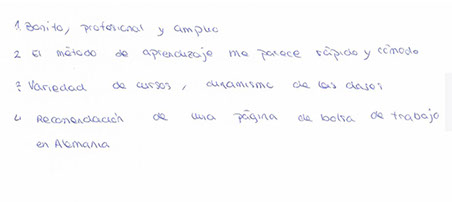 1. Bonito, profesional y amplio
2 El método de aprendizaje me parece rápido y cómodo
3 Variedad de cursos, dinamismo de las clases
4 Recomendación de una página de bolsa de trabajo
en Alemania